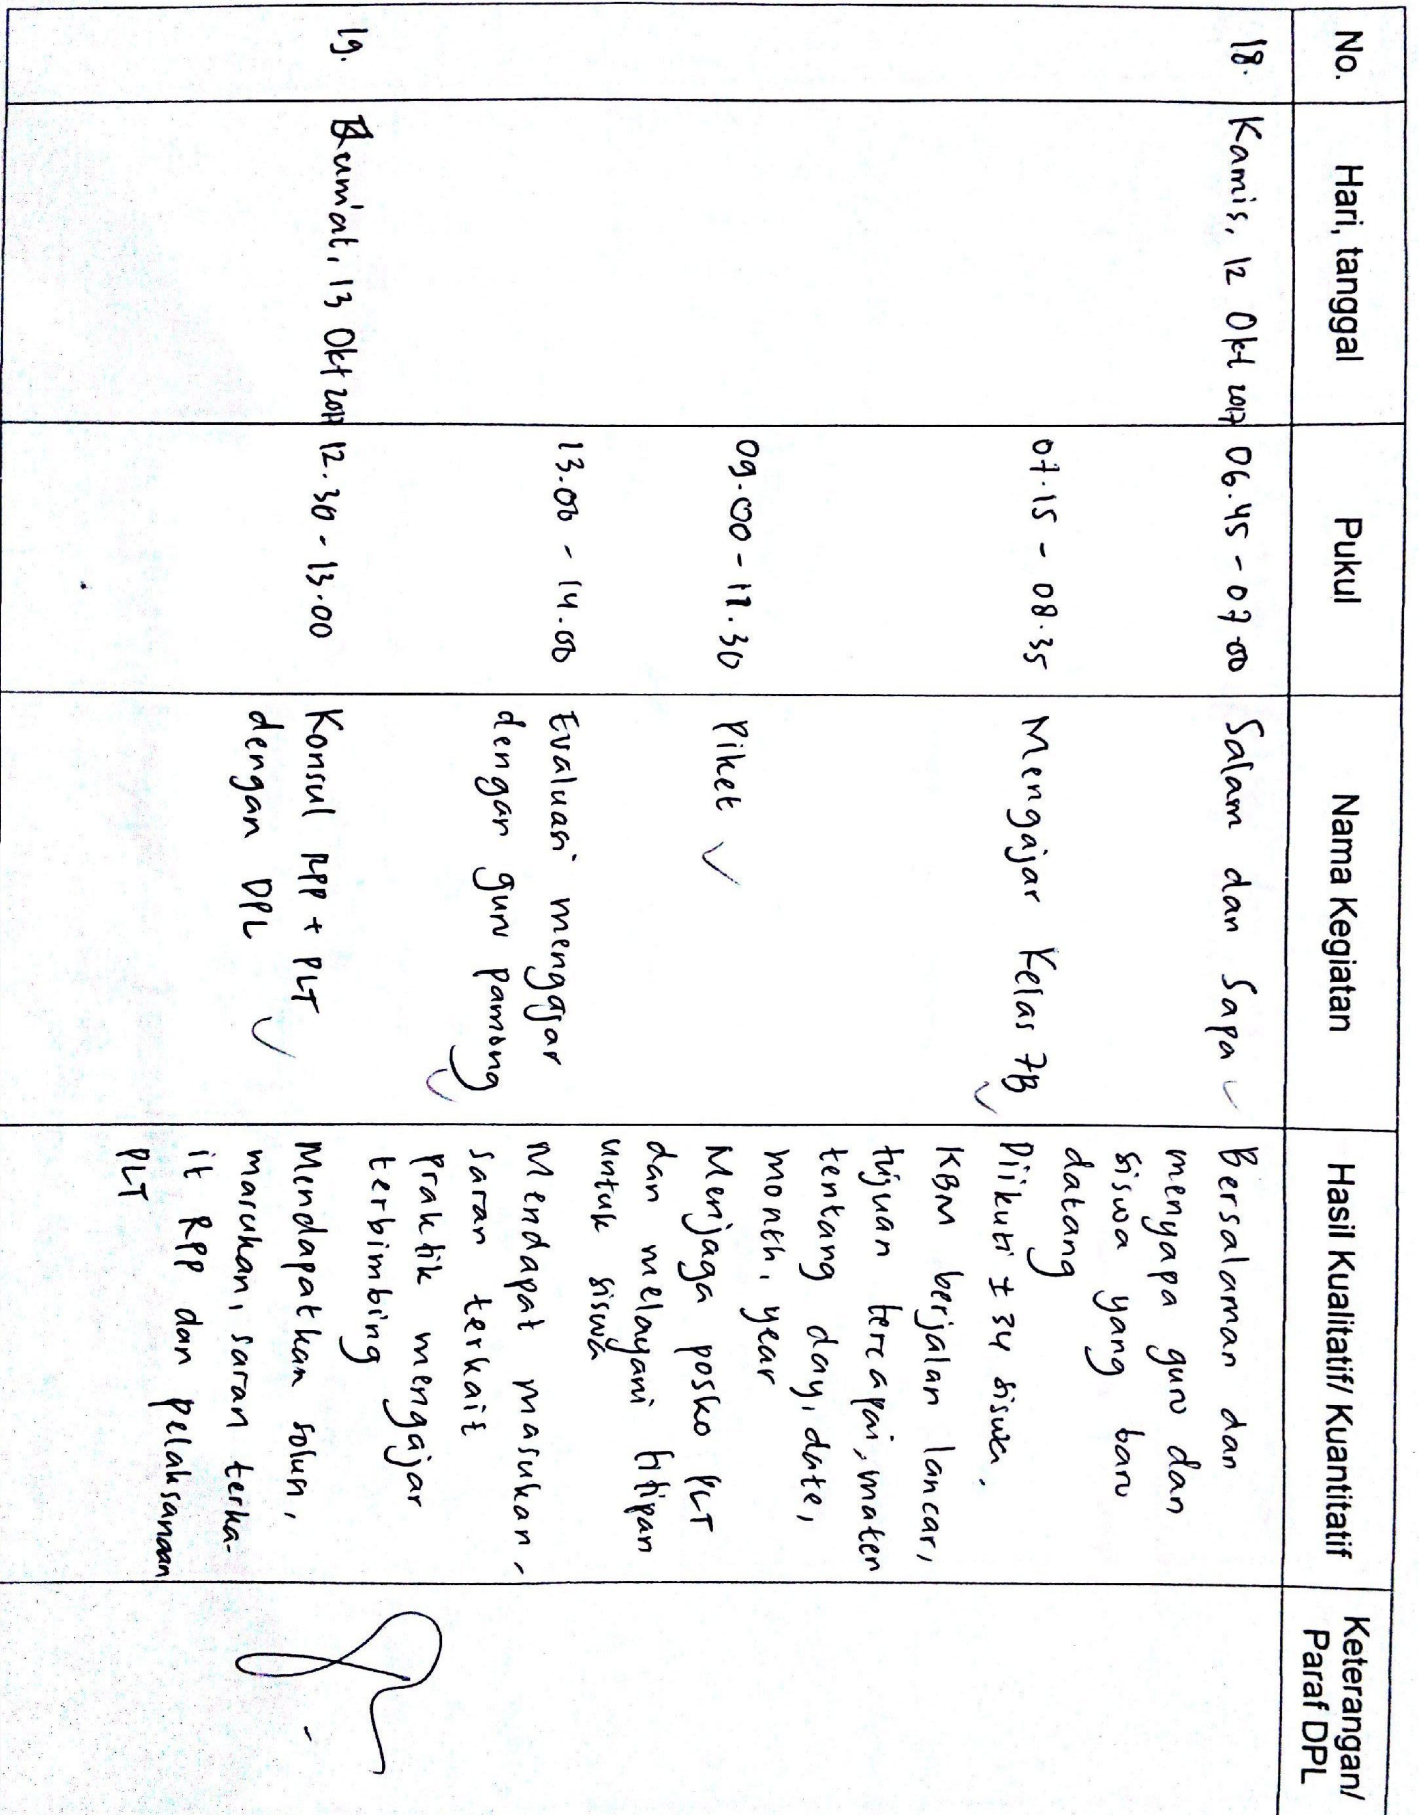 No.
Hari, tanggal
Pukul
Nama Kegiatan
Hasil Kualitatif/ Kuantitatif
Keterangan/
Paraf DPL
18.
Kamis, 12 Okt 2017
06.45 - 07.00
Salam dan Sapa
Bersalaman dan
menyapa guru dan
siswa yang baru
datang
07.15 - 08.35
Mengajar Kelas 7B
Diikuti ± 34 siswa.
KBM berjalan lancar,
tujuan tercapai, materi
tentang day, date,
month, year
09.00 - 11.30
Piket
Menjaga posko PLT
dan melayani titipan
untuk siswa
13.00 - 14.00
Evaluasi mengajar
dengan guru pamong
Mendapat masukan,
saran terkait
praktik mengajar
terbimbing
19.
Jum'at, 13 Okt 2017
12.30 - 13.00
Konsul RPP + PLT
dengan DPL
Mendapatkan solusi,
masukan, saran terka-
it RPP dan pelaksanaan
PLT